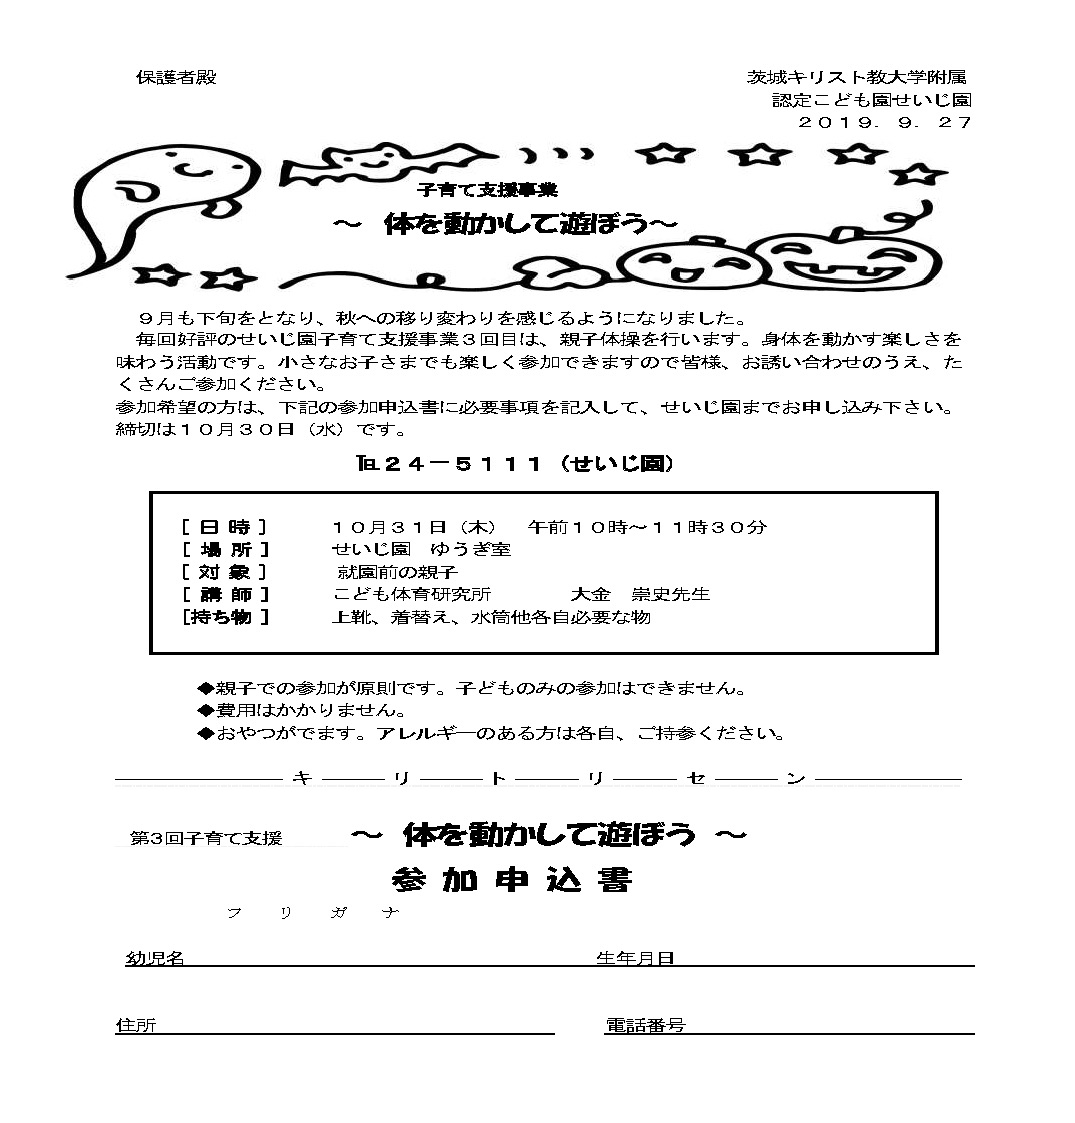 保護者殿
茨城キリスト教大学附属
認定こども園せいじ園
２０１９．９．２７
子育て支援事業
～ 体を動かして遊ぼう～
９月も下旬をとなり、秋への移り変わりを感じるようになりました。
毎回好評のせいじ園子育て支援事業３回目は、親子体操を行います。身体を動かす楽しさを
味わう活動です。小さなお子さまでも楽しく参加できますので皆様、お誘い合わせのうえ、た
くさんご参加ください。
参加希望の方は、下記の参加申込書に必要事項を記入して、せいじ園までお申し込み下さい。
締切は１０月３０日（水）です。
℡２４－５１１１（せいじ園）
[ 日 時 ] １０月３１日（木） 午前１０時～１１時３０分
[ 場 所 ] せいじ園 ゆうぎ室
[ 対 象 ] 就園前の親子
[ 講 師 ] こども体育研究所 大金 崇史先生
[持ち物 ] 上靴、着替え、水筒他各自必要な物
◆親子での参加が原則です。子どものみの参加はできません。
◆費用はかかりません。
◆おやつがでます。アレルギーのある方は各自、ご持参ください。
キ リ ト リ セ ン
第３回子育て支援 ～ 体を動かして遊ぼう ～
参 加 申 込 書
フ リ ガ ナ
幼児名 生年月日
住所 電話番号